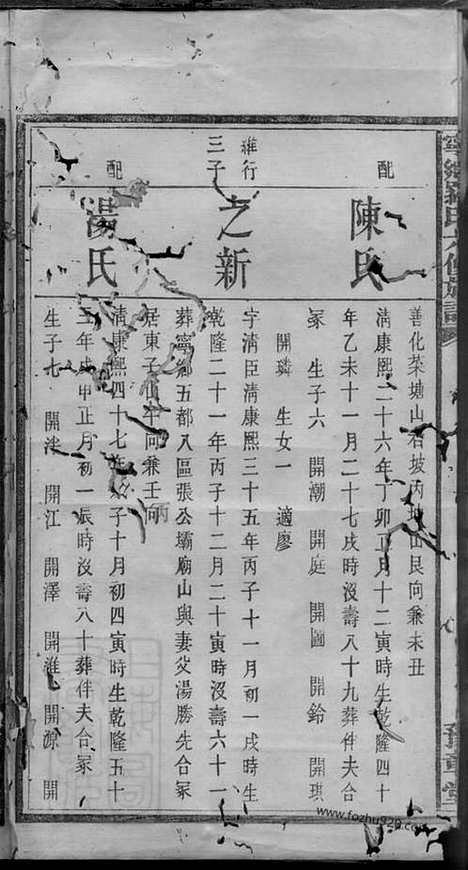 寧鄉 氏六修族譜
善化茶塘山石坡丙 山艮向兼未丑
配
陳氏
清康熙二十六年丁卯正月十二寅時生乾隆四十
年乙未十一月二十七戌時沒壽八十九葬伴夫合
冢 生子六 開潮 開庭 開圖 開鈴 開琪
開璘 生女一 適廖
維行
三子
之新
字清臣清康熙三十五年丙子十一月初一戌時生
乾隆二十一年丙子十二月二十寅時沒壽六十一
葬寧鄉五都八區張公壩廟山與妻父湯勝先合冢
居東子山午向兼壬丙
配
湯氏
清康熙四十七年戊子十月初四寅時生乾隆五十
三年戊申正月初一辰時沒壽八十葬伴夫合冢
生子七 開泮 開江 開澤 開淮 開源 開
www.fozhu920.com